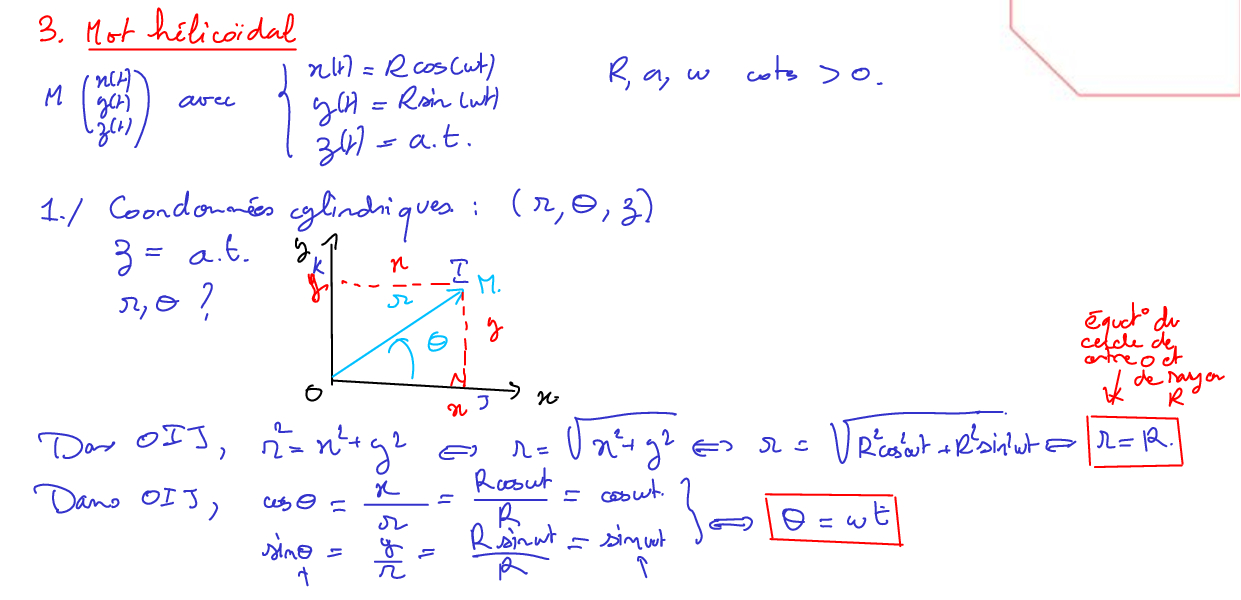 3. Mvt hélicoïdal
M (x(t) y(t) z(t)) avec { x(t) = R cos(ωt) y(t) = R sin(ωt) z(t) = a.t. R, a, ω cste > 0.
1./ Coordonnées cylindriques : (r, θ, z)
z = a.t.
r, θ ?
y
K
y
x
I
M.
r
θ
y
O
x
J
x
Équat° du
cercle de
centre O et
de rayon
R
Dans OIJ, r² = x² + y² ⟺ r = √(x² + y²) ⟺ r = √(R²cos²ωt + R²sin²ωt) ⟺ r = R.
Dans OIJ, cos θ = x/r = R cos ωt/R = cos ωt.
sin θ = y/r = R sin ωt/R = sin ωt } ⟺ θ = ωt